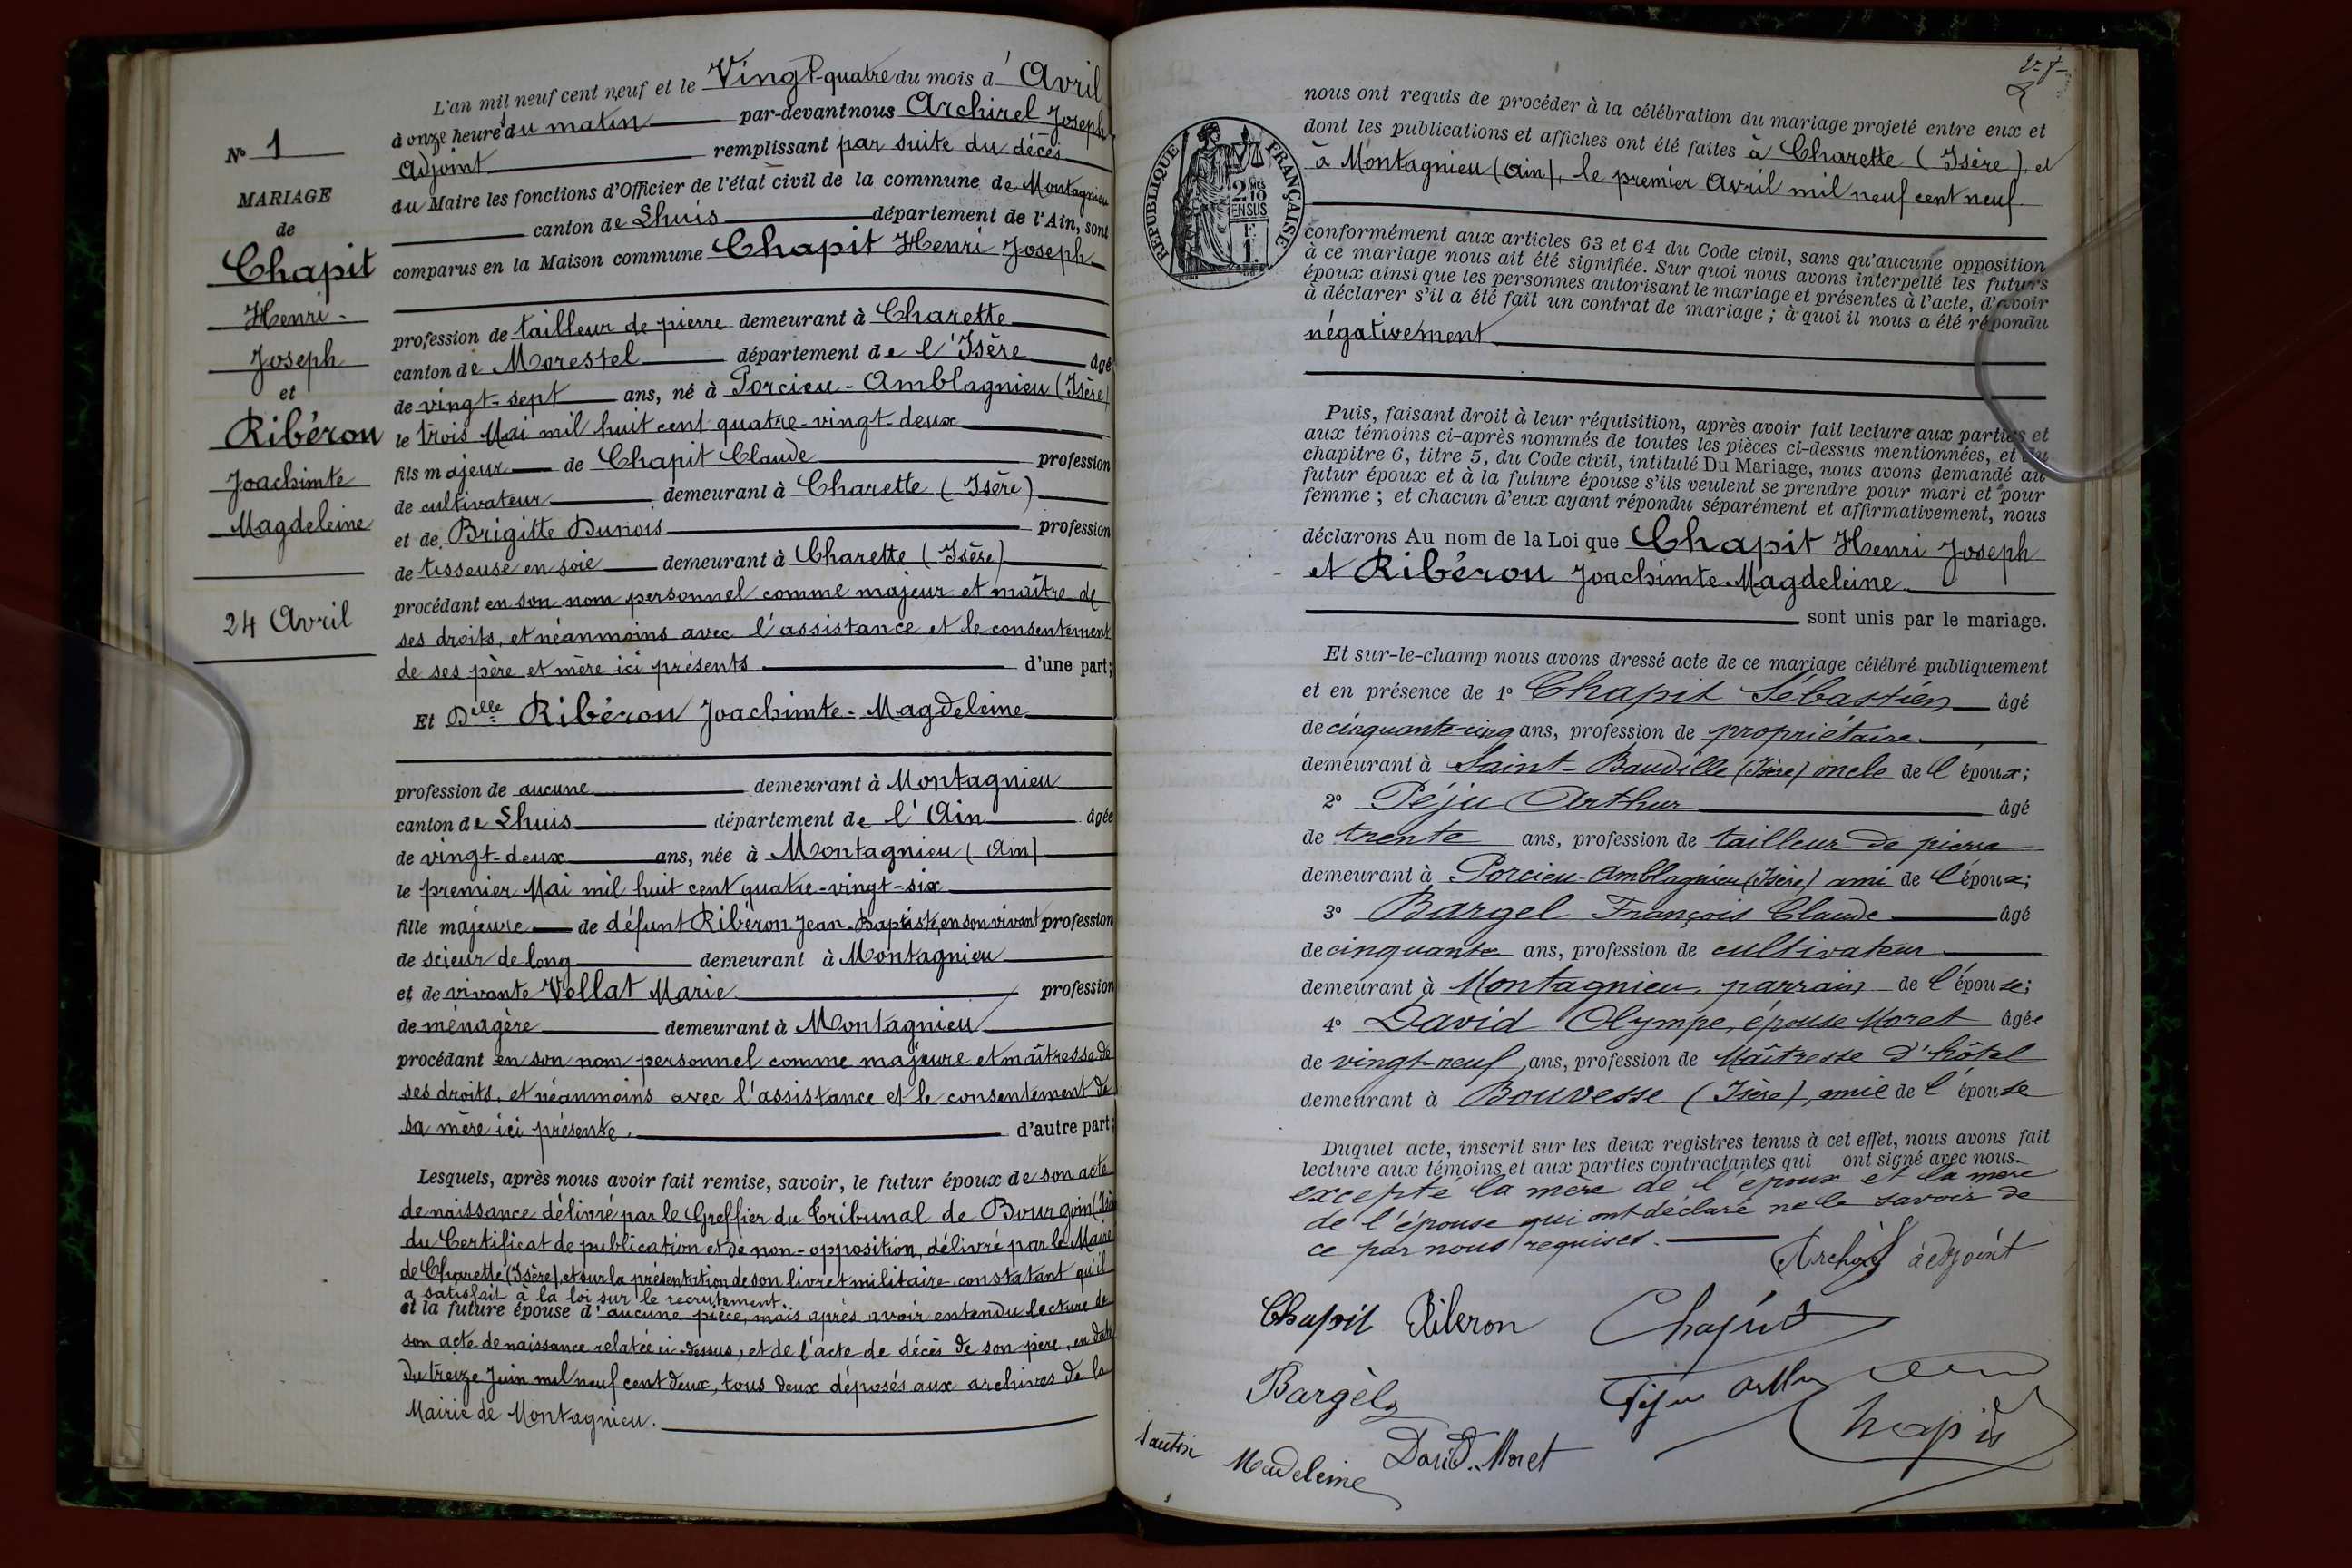 L'an mil neuf cent neuf et le Vingt-quatre du mois d'Avril
à onze heures du matin par-devant nous Archirel Joseph
Adjoint remplissant par suite du décès
du Maire les fonctions d'Officier de l'état civil de la commune de Montagnieu
canton de Lhuis département de l'Ain, sont
comparus en la Maison commune Chapit Henri Joseph
profession de tailleur de pierre demeurant à Charette
canton de Morestel département de l'Isère âgé
de vingt-sept ans, né à Porcieu-Amblagnieu (Isère)
le trois Mai mil huit cent quatre-vingt-deux
fils majeur de Chapit Claude profession
de cultivateur demeurant à Charette (Isère)
et de Brigitte Dunois profession
de tisseuse en soie demeurant à Charette (Isère)
procédant en son nom personnel comme majeur et maître de
ses droits, et néanmoins avec l'assistance et le consentement
de ses père et mère ici présents d'une part;
Et Delle Ribéron Joachimte-Magdeleine
profession de aucune demeurant à Montagnieu
canton de Lhuis département de l'Ain âgée
de vingt-deux ans, née à Montagnieu (Ain)
le premier Mai mil huit cent quatre-vingt-six
fille majeure de défunt Ribéron Jean-Baptiste, en son vivant profession
de scieur de long demeurant à Montagnieu
et de vivante Vollat Marie profession
de ménagère demeurant à Montagnieu
procédant en son nom personnel comme majeure et maîtresse de
ses droits, et néanmoins avec l'assistance et le consentement de
sa mère ici présente. d'autre part;
Lesquels, après nous avoir fait remise, savoir, le futur époux de son acte
de naissance délivré par le Greffier du Tribunal de Bourgoin (Isère
du Certificat de publication et de non-opposition, délivré par le Maire
de Charette (Isère), et sur la présentation de son livret militaire constatant qu'il
a satisfait à la loi sur le recrutement.
et la future épouse d'aucune pièce, mais après avoir entendu lecture de
son acte de naissance relatée ci-dessus, et de l'acte de décès de son père, en date
du treize Juin mil neuf cent deux, tous deux déposés aux archives de la
Mairie de Montagnieu.
N° 1
MARIAGE
de
Chapit
Henri-
Joseph
et
Ribéron
Joachimte
Magdeleine
24 Avril
nous ont requis de procéder à la célébration du mariage projeté entre eux et
dont les publications et affiches ont été faites à Charette (Isère), et
à Montagnieu (Ain), le premier Avril mil neuf cent neuf.
RÉPUBLIQUE FRANÇAISE
2 MES 10
EN SUS
1 F.
conformément aux articles 63 et 64 du Code civil, sans qu'aucune opposition
à ce mariage nous ait été signifiée. Sur quoi nous avons interpellé les futurs
époux ainsi que les personnes autorisant le mariage et présentes à l'acte, d'avoir
à déclarer s'il a été fait un contrat de mariage; à quoi il nous a été répondu
négativement
Puis, faisant droit à leur réquisition, après avoir fait lecture aux parties et
aux témoins ci-après nommés de toutes les pièces ci-dessus mentionnées, et du
chapitre 6, titre 5, du Code civil, intitulé Du Mariage, nous avons demandé au
futur époux et à la future épouse s'ils veulent se prendre pour mari et pour
femme; et chacun d'eux ayant répondu séparément et affirmativement, nous
déclarons Au nom de la Loi que Chapit Henri Joseph
et Ribéron Joachimte-Magdeleine
sont unis par le mariage.
Et sur-le-champ nous avons dressé acte de ce mariage célébré publiquement
et en présence de 1° Chapit Sébastien âgé
de cinquante-cinq ans, profession de propriétaire
demeurant à Saint-Baudille (Isère) oncle de l'époux;
2° Péju Arthur âgé
de trente ans, profession de tailleur de pierre
demeurant à Porcieu-Amblagnieu (Isère) ami de l'époux;
3° Bargel François Claude âgé
de cinquante ans, profession de cultivateur
demeurant à Montagnieu, parrain de l'épouse;
4° David Olympe, épouse Moret âgée
de vingt-neuf ans, profession de Maîtresse d'hôtel
demeurant à Bouvesse (Isère), amie de l'épouse
Duquel acte, inscrit sur les deux registres tenus à cet effet, nous avons fait
lecture aux témoins et aux parties contractantes qui ont signé avec nous.
excepté la mère de l'époux et la mère
de l'épouse qui ont déclaré ne le savoir de
ce par nous requises.
adjoint
Chapit Riberon Chapit
Bargel Péju Arthur
Chapit
David-Moret
Madeleine